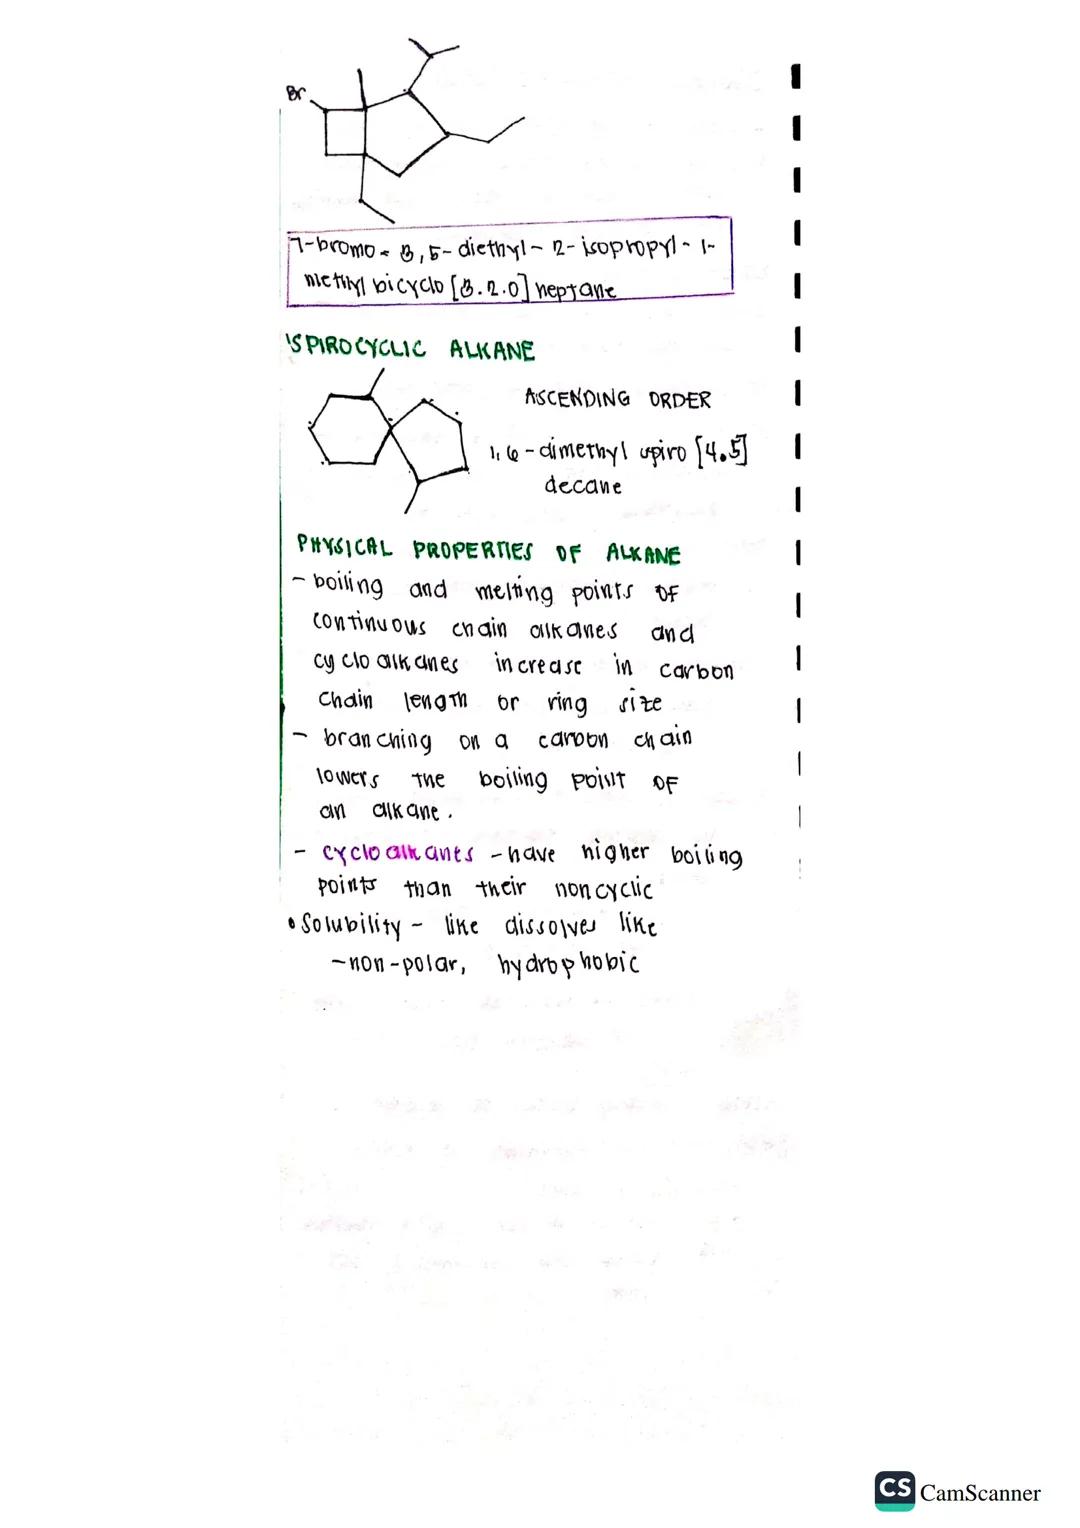 Br
7-bromo-3,5-diethyl-2-isopropyl-1-
methyl bicyclo [3.2.0] heptane
SPIROCYCLIC ALKANE
ASCENDING ORDER
1,6-dimethyl spiro [4.5]
decane
PHYSICAL PROPERTIES OF ALKANE
- boiling and melting points of
continuous chain alkanes and
cyclo alkanes increase in carbon
chain length or ring size
- branching on a carbon chain
lowers the boiling point of
an alkane.
- cyclo alkanes - have higher boiling
points than their noncyclic
• Solubility - like dissolves like
- non-polar, hydrophobic
CS CamScanner